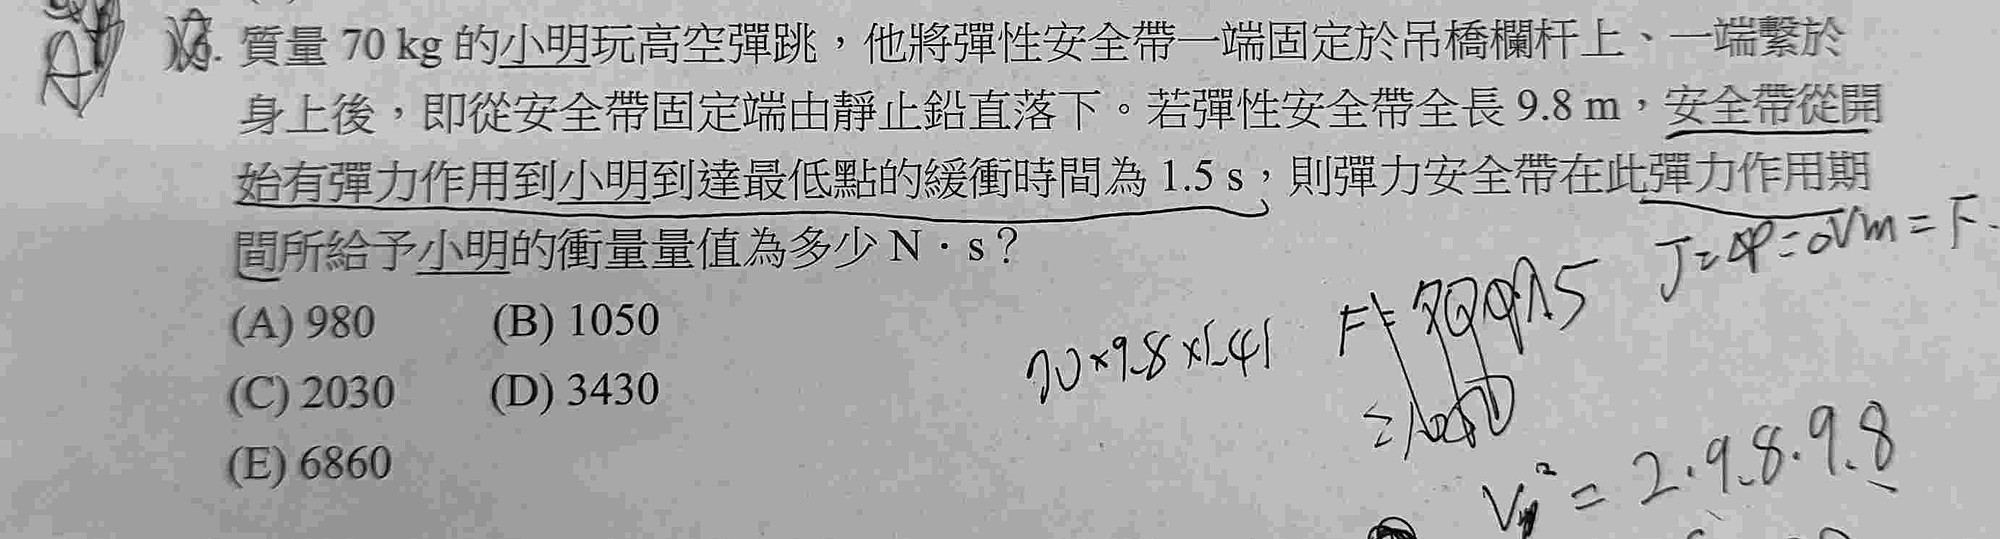 質量 70 kg 的小明玩高空彈跳，他將彈性安全帶一端固定於吊橋欄杆上、一端繫於
身上後，即從安全帶固定端由靜止鉛直落下。若彈性安全帶全長 9.8 m，安全帶從開
始有彈力作用到小明到達最低點的緩衝時間為 1.5 s，則彈力安全帶在此彈力作用期
間所給予小明的衝量量值為多少 N · s？
J=ΔP=ΔVm=F.
(A) 980 (B) 1050
70×9.8×1.41
(C) 2030 (D) 3430
=1050
(E) 6860
V² = 2.9.8.9.8